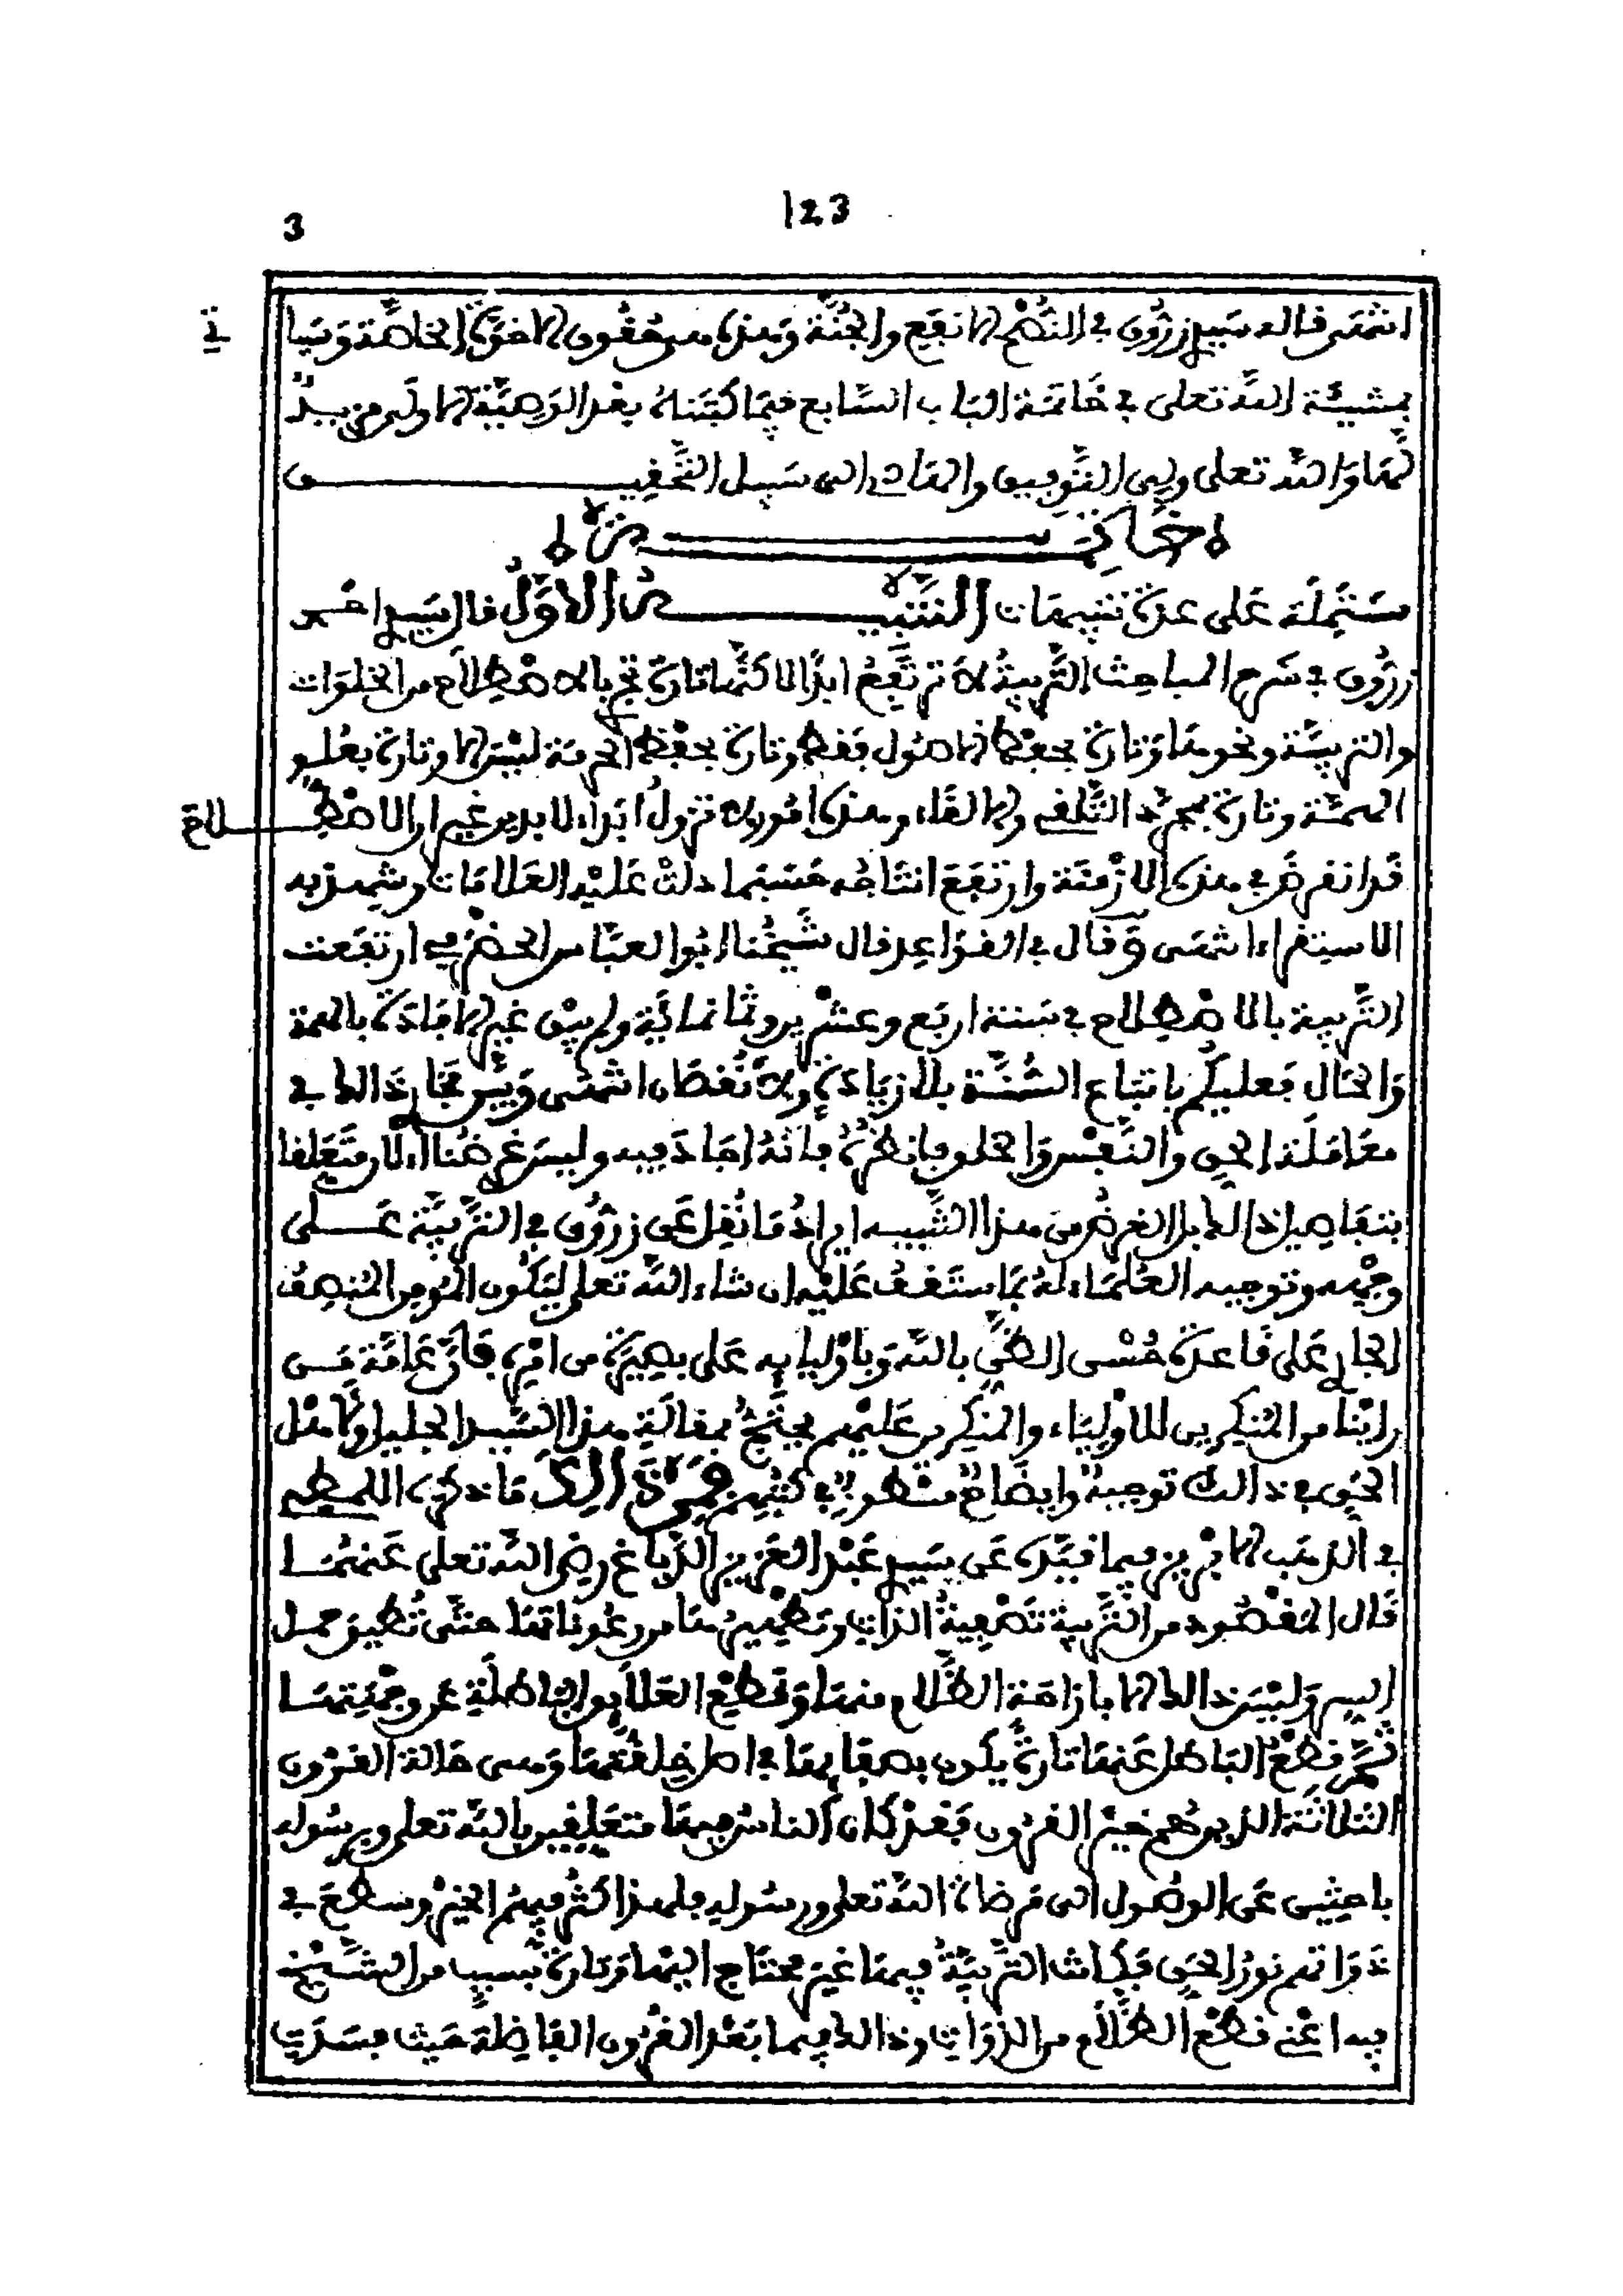 123
3
انتهى قاله سيدي زروق في النصح الانفع والجنة وهذه هي حقوق الاخوة الخاصة وسيا
تي
بمشيئة الله تعلى في خاتمة الباب السابع فيما كتبناه بعد الوصية الاولى مزيد
لها والله تعلى ولي التوفيق والهادي الى سبيل التحقيق
خاتمة
مشتملة على عدة تنبيهات التنبيه الاول قال سيدي احمد
زروق في شرح المباحث التربية لا ترتفع ابدا الا كنها تارة تجري بالاصطلاح من الخلوات
والتربية ونحوها وتارة بحفظ الاصول فقط وتارة بحفظ الحرمة ليس الا وتارة بعلو
الهمة وتارة بمجرد التلقي والالقاء وهذه امور لا تزول ابدا الابدين غير ان الاصطلاح
قد انقرض في هذه الازمنة وارتفع انتاجه حسبما دلت عليه العلامات وشهد به
الاستقراء انتهى وقال في القواعد قال شيخنا ابو العباس الحضرمي ارتفعت
التربية بالاصطلاح في سنة اربع وعشرين وثمانمائة ولم يبق غير الافادة بالهمة
والحال فعليكم باتباع السنة بلا زيادة ولا نقصان انتهى وبين مجاري ذالك في
معاملة الحق والنفس والخلق فانظره فانه اجاد فيه وليس غرضنا الان متعلقا
بتفاصيل ذالك بل الغرض من هذا التنبيه ايراد ما نقل عن زروق في التربية على
وجهه وتوجيه العلماء له بما ستقف عليه ان شاء الله تعلى ليكون المومن المنصف
الجاري على قاعدة حسن الظن بالله وباوليايه على بصيرة من امره فان عامة من
راينا من المنكرين للاولياء والمنكرين عليهم يحتج بمقالة هذا السيد الجليل ولاهل
الحق في ذالك توجيه وايضاح مسطور في كتبهم فمن ذالك ما ذكره اللمطي
في الذهب الابريز فيما قيده عن سيدي عبد العزيز الدباغ رضي الله تعلى عنهما
قال المقصود من التربية تصفية الذات وتطهيرها من رعوناتها حتى تطيق حمل
السر وليس ذالك الا بازاحة الظلام منها وقطع العلايق الباطلة عن وجهتها
ثم قطع الباطل عنها تارة يكون بصفايها في اصل خلقتها وهي حالة القرون
الثلاثة الذين هم خير القرون فقد كان الناس جميعا متعلقين بالله تعلى وبرسوله
باحثين عن الوصول الى مرضاة الله تعلى ورسوله فلهذا كثر فيهم الخير وسطع في
ذواتهم نور الحق فكانت التربية فيها غير محتاج اليها وتارة بسبب من الشيخ
فيه اعني قطع الظلام من الذوات وذالك فيما بعد القرون الفاضلة حيث فسدت